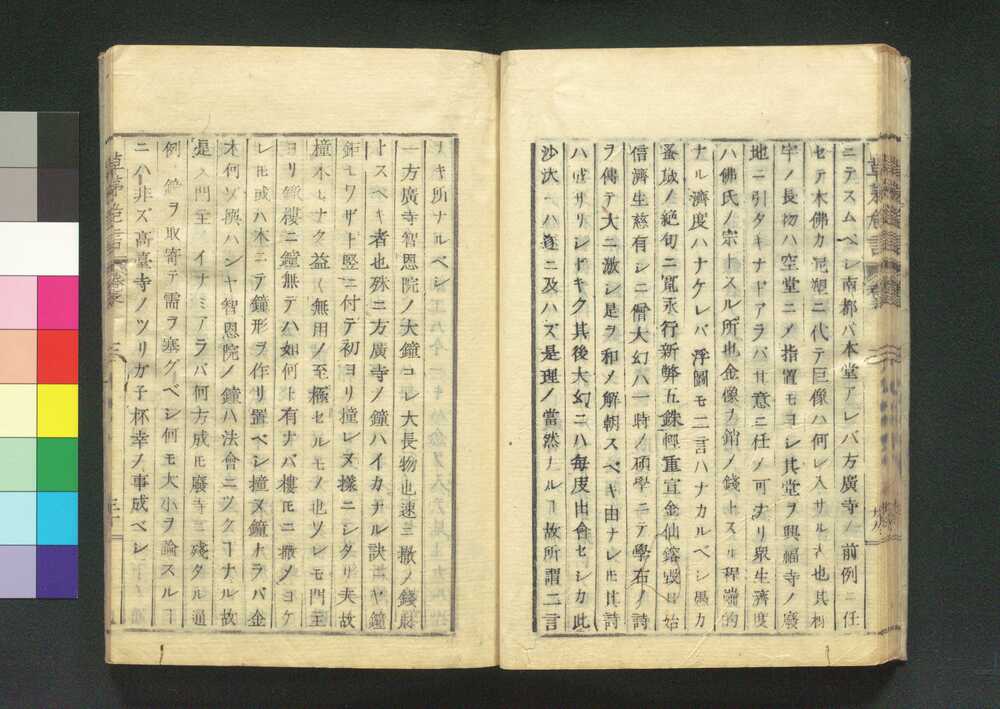 ニテスムベシ南都バ本堂アレバ方廣寺ノ前例ニ任
セテ木佛カ泥塑ニ代テ巨像ハ何レ入サル也其材
宇ノ長物ハ空堂ニメ指置モヨシ其堂ヲ興福寺ノ廢
地ニ引タキナドアラバ其意ニ任メ可ナリ衆生濟度
ハ佛氏ノ宗トスル所也金像ヲ銷ノ錢トスル程端的
ナル濟度ハナケレバ浮圖モ二言ハナカルベシ愚カ
蚤歳ノ絶句ニ寛永行新弊五銖輕重宜金仙鎔毀日始
信濟生慈有シニ僧大幻ハ一時ノ碩學ニテ學布ノ詩
ヲ傳テ大ニ激シ是ヲ和メ解朝スベキ由ナレ𪜈其詩
ハ成サリシトキク其後大幻ニハ毎度出會セシカ此
沙汰ヘハ遂ニ及ハズ是理ノ當然ナルヿ故所謂二言
ナキ所ナルベシ
一方廣寺智恩院ノ大鐘コレ大長物也速ニ撤ノ錢財
トスベキ者也殊ニ方廣寺ノ鐘ハイカナル訣ニヤ鐘
鉅モワザト竪ニ付テ初ヨリ撞レヌ樣ニシタリ夫故
橦木モナク益〱無用ノ至極セルモノ也ツレモ門主
ヨリ鐘樓ニ鐘無テハ如何ト有ナバ樓𪜈ニ撤メヨケ
レ𪜈或ハ木ニテ鐘形ヲ作リ置ベシ撞ヌ鐘ナラバ金
木何ソ撰ハンヤ智恩院ノ鐘ハ法會ニツクヿナル故
是ハ門主イナミアラバ何方成𪜈廢寺ニ殘タル通
例ノ鐘ヲ取寄テ需ヲ塞グベシ何モ大小ヲ論スルヿ
ニハ非ズ高臺寺ノツリガ子杯幸ノ事成ベシ
草茅危言